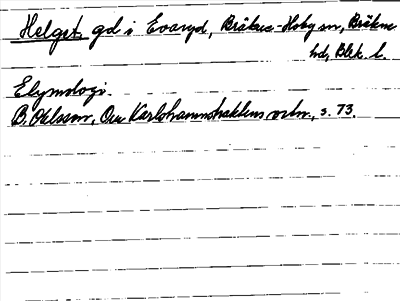 Helget, gd i Evaryd, Bräkne-Hoby sn, Bräkne
hd, Blek. l.
Etymologi.
B. Ohlsson, Om Karlshamnstraktens ortn., s. 73.